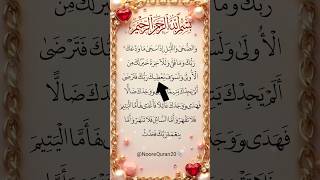 بِسْمِ اللهِ الرَّحْمٰنِ الرَّحِيْمِ
وَالضُّحٰى وَاللَّيْلِ اِذَا سَجٰى مَا وَدَّعَكَ
رَبُّكَ وَمَا قَلٰى وَلَلْاٰخِرَةُ خَيْرٌ لَّكَ مِنَ
الْاُوْلٰى وَلَسَوْفَ يُعْطِيْكَ رَبُّكَ فَتَرْضٰى
اَلَمْ يَجِدْكَ يَتِيْمًا وَوَجَدَكَ ضَالًّا
فَهَدٰى وَوَجَدَكَ عَآئِلًا فَاَغْنٰى فَاَمَّا الْيَتِيْمَ
فَلَا تَقْهَرْ وَاَمَّا السَّآئِلَ فَلَا تَنْهَرْ وَاَمَّا
بِنِعْمَةِ رَبِّكَ فَحَدِّثْ
@NooreQuran20